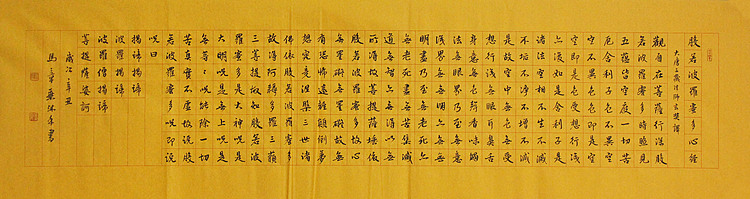 般若波羅蜜多心經
大唐三藏法師玄奘譯
觀自在菩薩行深般
若波羅蜜多時照見
五蘊皆空度一切苦
厄舍利子色不異空
空不異色色即是空
空即是色受想行識
亦復如是舍利子是
諸法空相不生不滅
不垢不淨不增不減
是故空中無色無受
想行識無眼耳鼻舌
身意無色聲香味觸
法無眼界乃至無意
識界無無明亦無無
明盡乃至無老死亦
無老死盡無苦集滅
道無智亦無得以無
所得故菩提薩埵依
般若波羅蜜多故心
無罣礙無罣礙故無
有恐怖遠離顛倒夢
想究竟涅槃三世諸
佛依般若波羅蜜多
故得阿耨多羅三藐
三菩提故知般若波
羅蜜多是大神咒是
大明咒是無上咒是
無等〻咒能除一切
苦真實不虛故說般
若波羅蜜多咒即說
咒曰
揭諦揭諦
波羅揭諦
波羅僧揭諦
菩提薩婆訶
歲次
書